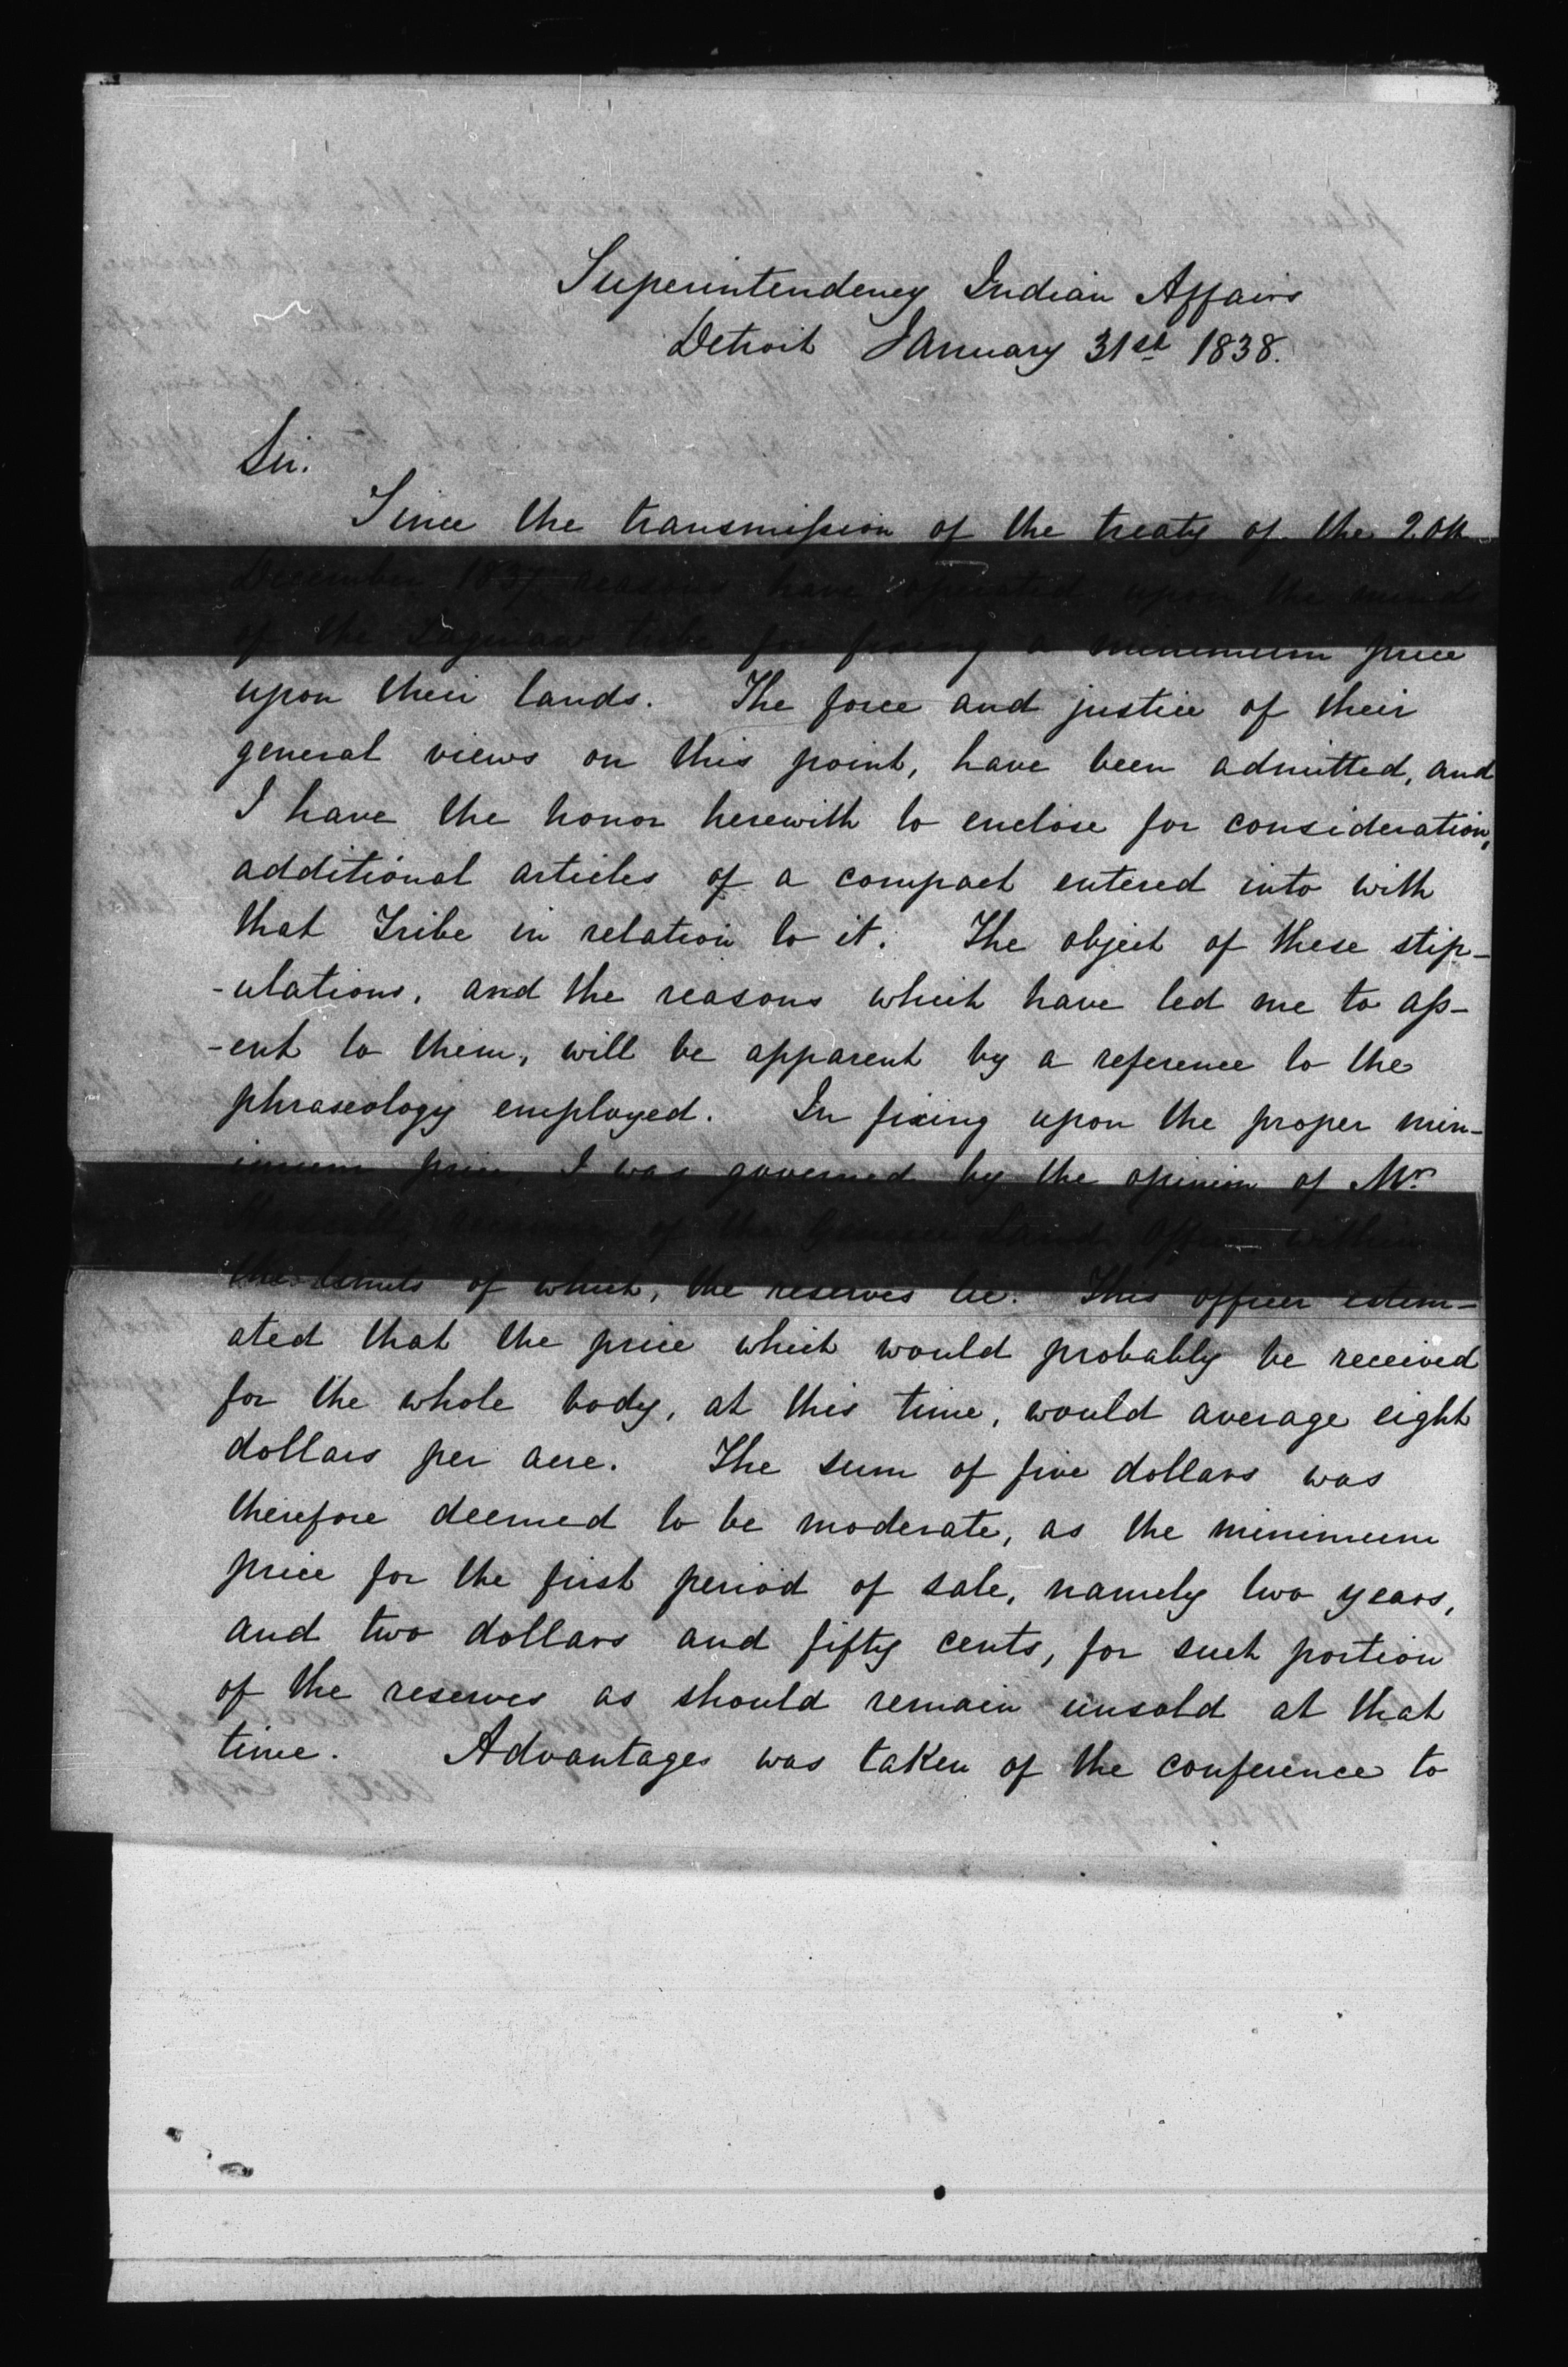 Superintendency Indian Affairs
Detroit January 31st 1838.
Sir.
Since the transmission of the treaty of the 20th
December 1837, reasons have operated upon the minds
of the Saginaw tribe for fixing a minimum price
upon their lands. The force and justice of their
general views on this point, have been admitted, and
I have the honor herewith to enclose for consideration,
additional articles of a compact entered into with
that Tribe in relation to it. The object of these stip-
-ulations, and the reasons which have led me to ass-
-ent to them, will be apparent by a reference to the
phraseology employed. In fixing upon the proper min-
imum price, I was governed by the opinion of Mr.
of the Genesee Land Office within
the limits of which, the reserves lie. This officer estim-
ated that the price which would probably be received
for the whole body, at this time, would average eight
dollars per acre. The sum of five dollars was
therefore deemed to be moderate, as the minimum
price for the first period of sale, namely two years,
and two dollars and fifty cents, for such portion
of the reserves as should remain unsold at that
time. Advantages was taken of the conference to